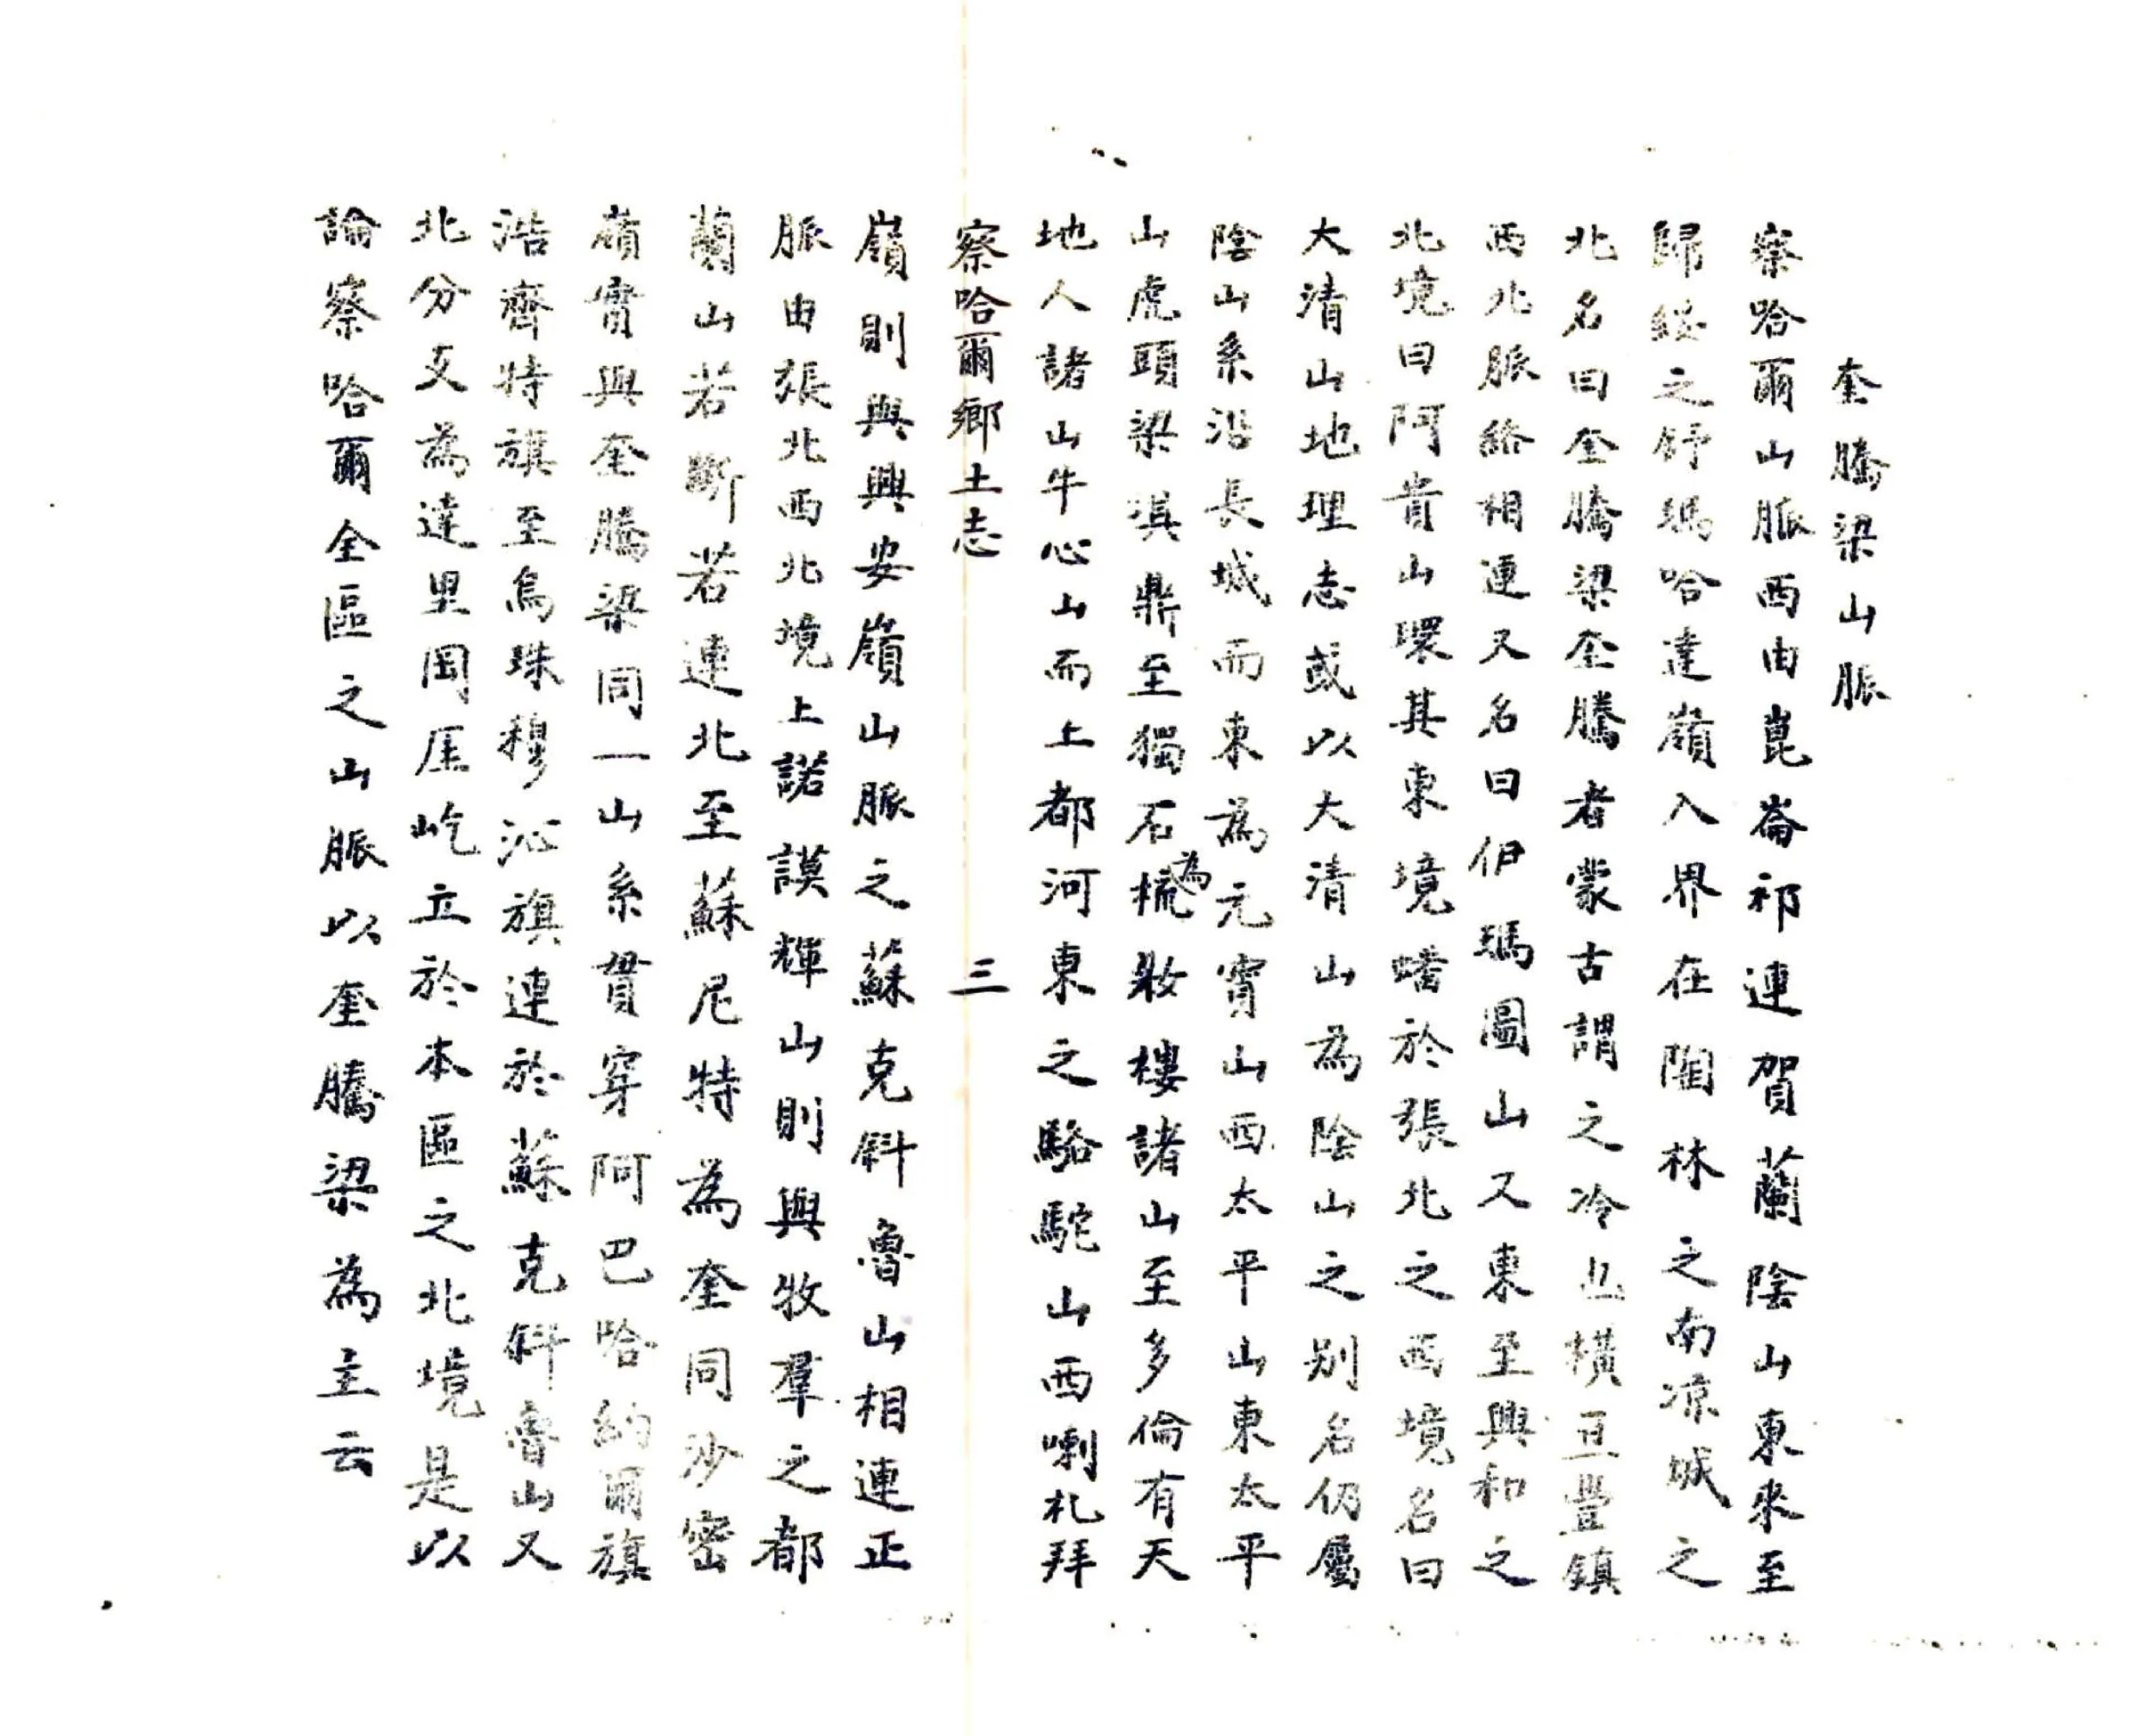 奎騰梁山脈
察哈爾山脈西由崑崙祁連賀蘭陰山東來至
歸綏之舒瑪哈達嶺入界在陶林之南凉城之
北名曰奎騰梁奎騰者蒙古謂之冷也橫亘豐鎮
西北脈絡相連又名曰伊瑪圖山又東至興和之
北境曰阿貴山環其東境蟠於張北之西境名曰
大清山地理志或以大清山為陰山之别名仍屬
陰山系沿長城而東為元寶山西太平山東太平
山虎頭梁淇鼎至獨石為梳妝樓諸山至多倫有天
地人諸山牛心山而上都河東之駱駝山西喇札拜
察哈爾鄉土志 三
嶺則與興安嶺山脈之蘇克斜魯山相連正
脈由張北西北境上諾謨輝山則與牧羣之都
蘭山若斷若連北至蘇尼特為奎同沙密
嶺實與奎騰梁同一山系貫穿阿巴哈約爾旗
浩齊特旗至烏珠穆沁旗連於蘇克斜魯山又
北分支為達里岡厓屹立於本區之北境是以
論察哈爾全區之山脈以奎騰梁為主云